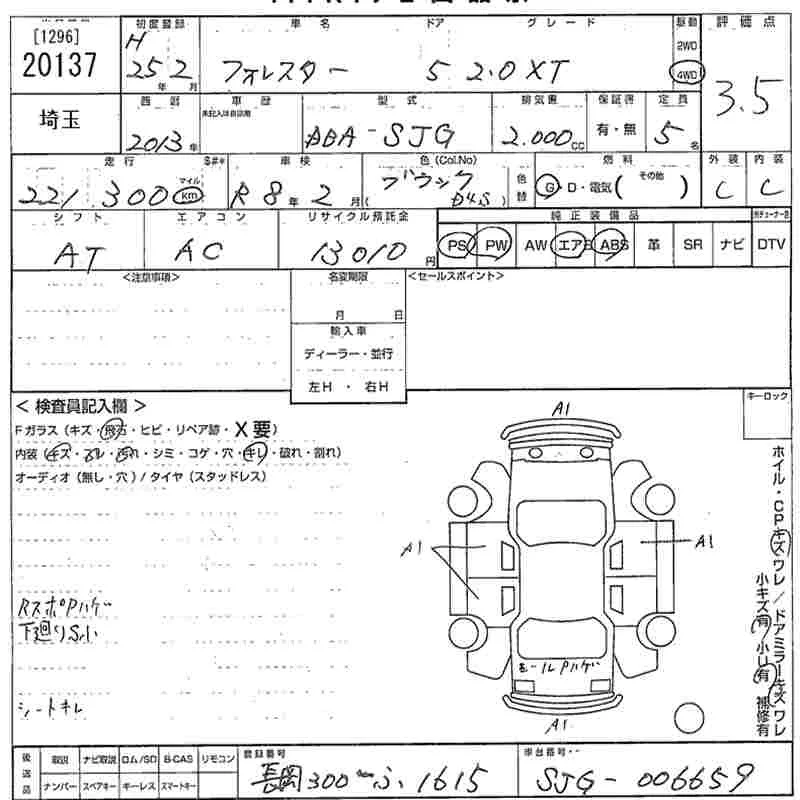 [1296]
20137
初度登録
H 25年 2月
車名
フォレスター
ドア
5
グレード
2.0 XT
駆動
2WD
4WD
評価点
3.5
埼玉
西暦
2013年
車歴
未記入は自家用
型式
DBA-SJG
排気量
2.000cc
保証書
有・無
定員
5名
走行
221300
マイル
km
S#*
車検
R8年 2月
色(Col.No)
ブラック
(D4S)
色替
燃料
G・D・電気( その他 )
外装
C
内装
C
シフト
AT
エアコン
AC
リサイクル預託金
13010円
純正装備品
PS PW AW エアB ABS 革 SR ナビ
DTV
<注意事項>
名変期限
月 日
輸入車
ディーラー・並行
左H ・ 右H
<セールスポイント>
< 検査員記入欄 >
Fガラス (キズ・飛石・ヒビ・リペア跡・X要)
内装 (キズ・スレ・汚れ・シミ・コゲ・穴・キレ・破れ・割れ)
オーディオ (無し・穴) / タイヤ (スタッドレス)
RスポPハゲ
下廻りS小
シートキレ
キーロック
A1
A1
A1
モールPハゲ
A1
ホイル・CPキズワレ/ドアミラーキズワレ
小キズ有/小U有 補修有
後送品
取説 ナビ取説 ロム/SD B-CAS リモコン
ナンバー スペアキー キーレス スマートキー
登録番号
長岡 300 ふ 1615
車台番号
SJG-006659